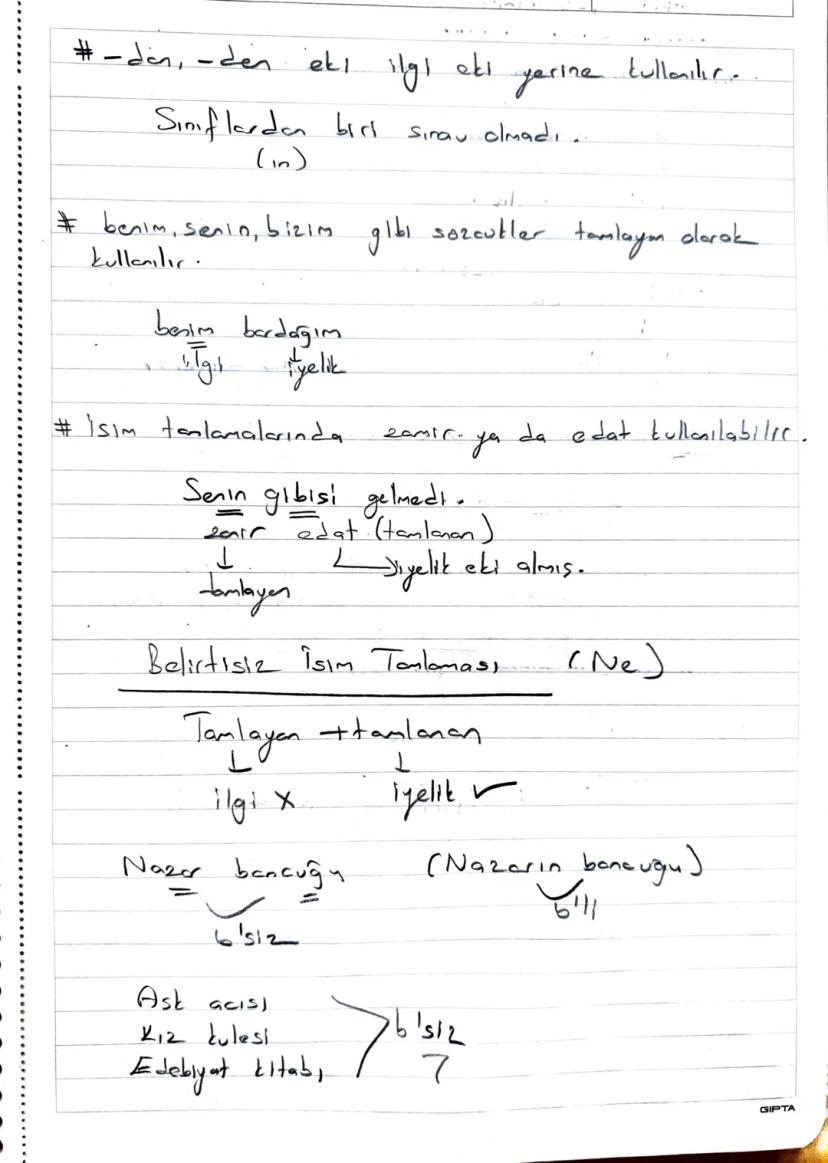 # -dan, -den eki ilgi eki yerine kullanılır.
Sınıflardan biri sınav olmadı.
(ın)
# benim, senin, bizim gibi sözcükler tamlayan olarak
kullanılır.
benim bardağım
ilgi iyelik
# İsim tamlamalarında zamir ya da edat kullanılabilir.
Senin gibisi gelmedi.
zamir edat (tamlanan)
↓ ↳ iyelik eki almış.
tamlayan
Belirtisiz İsim Tamlaması (Ne)
Tamlayan + tamlanan
↓ ↓
ilgi x iyelik ✓
Nazar boncuğu (Nazarın boncuğu)
b'siz b'li
Aşk acısı
Kız kulesi b'siz
Edebiyat kitabı
GIPTA